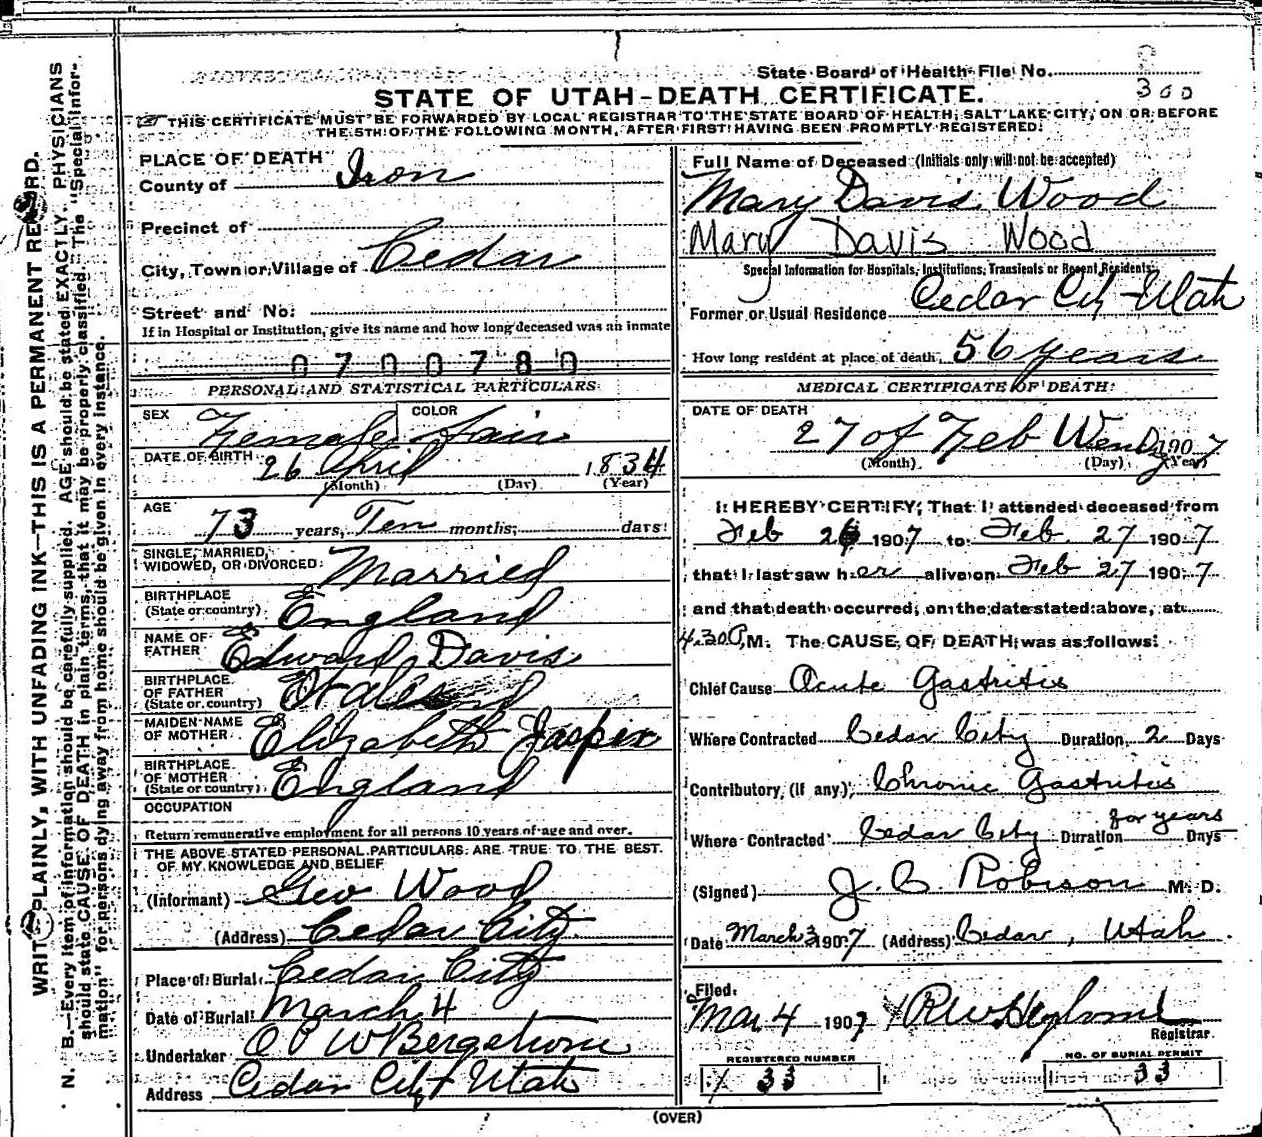 State Board of Health File No.
300
STATE OF UTAH-DEATH CERTIFICATE.
THIS CERTIFICATE MUST BE FORWARDED BY LOCAL REGISTRAR TO THE STATE BOARD OF HEALTH, SALT LAKE CITY, ON OR BEFORE
THE 5TH OF THE FOLLOWING MONTH, AFTER FIRST HAVING BEEN PROMPTLY REGISTERED.
WRITE PLAINLY, WITH UNFADING INK—THIS IS A PERMANENT RECORD.
N. B.—Every item of information should be carefully supplied. AGE should be stated EXACTLY. PHYSICIANS
should state CAUSE OF DEATH in plain terms, that it may be properly classified. The "Special Infor-
mation" for persons dying away from home should be given in every instance.
PLACE OF DEATH
County of Iron
Precinct of
City, Town or Village of Cedar
Street and No.
If in Hospital or Institution, give its name and how long deceased was an inmate
0700780
PERSONAL AND STATISTICAL PARTICULARS
SEX Female COLOR Fair
DATE OF BIRTH 26 April 1834
(Month) (Day) (Year)
AGE 73 years, Ten months, days
SINGLE, MARRIED,
WIDOWED, OR DIVORCED Married
BIRTHPLACE
(State or country) England
NAME OF
FATHER Edward Davis
BIRTHPLACE
OF FATHER
(State or country) Wales
MAIDEN NAME
OF MOTHER Elizabeth Jasper
BIRTHPLACE
OF MOTHER
(State or country) England
OCCUPATION
Return remunerative employment for all persons 10 years of age and over.
THE ABOVE STATED PERSONAL PARTICULARS ARE TRUE TO THE BEST
OF MY KNOWLEDGE AND BELIEF
(Informant) Geo Wood
(Address) Cedar City
Place of Burial Cedar City
Date of Burial March 4
Undertaker O P W Bergstrom
Address Cedar City Utah
Full Name of Deceased (Initials only will not be accepted)
Mary Davis Wood
Mary Davis Wood
Special Information for Hospitals, Institutions, Transients or Recent Residents.
Former or Usual Residence Cedar City Utah
How long resident at place of death 56 years
MEDICAL CERTIFICATE OF DEATH
DATE OF DEATH
27 of Feb Wendy 1907
(Month) (Day) (Year)
I HEREBY CERTIFY, That I attended deceased from
Feb 26 1907 to Feb. 27 1907
that I last saw her alive on Feb 27 1907
and that death occurred, on the date stated above, at
4.30 P. M. The CAUSE OF DEATH was as follows:
Chief Cause Acute Gastritis
Where Contracted Cedar City Duration 2 Days
Contributory, (if any) Chronic Gastritis
for years
Where Contracted Cedar City Duration Days
(Signed) J. C. Robison M. D.
Date March 3 1907 (Address) Cedar, Utah
Filed
Mar 4 1907
Registrar
REGISTERED NUMBER
33
NO. OF BURIAL PERMIT
33
(OVER)